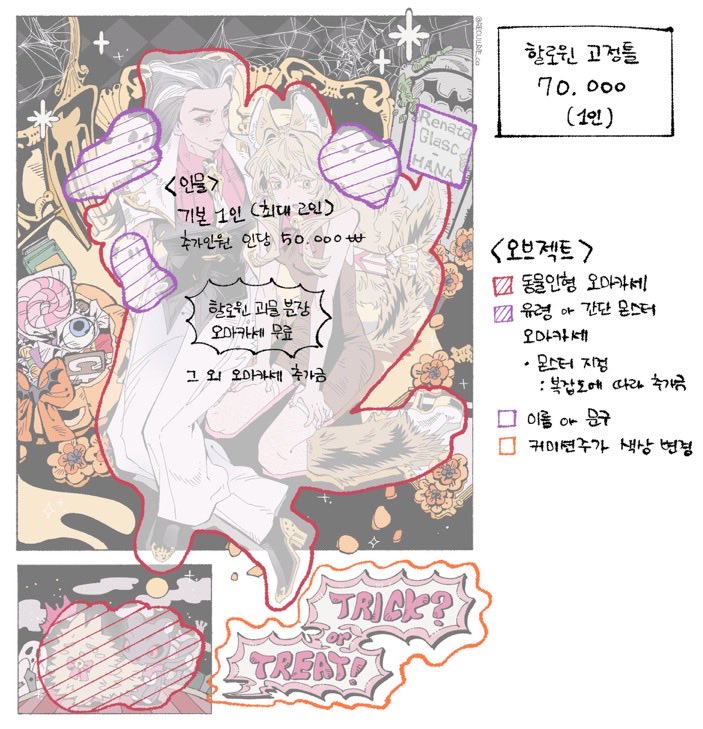 @RECULIARE.CO
할로윈 고정틀
70.000
(1인)
Renata
Glasc
-
HANA
<인물>
기본 1인 (최대 2인)
추가인원 인당 50.000₩
할로윈 괴물 분장
오마카세 무료
그 외 오마카세 추가금
<오브젝트>
동물인형 오마카세
유령 or 간단 몬스터
오마카세
· 몬스터 지정
: 복잡도에 따라 추가금
이름 or 문구
커미션주가 색상 변경
C
TRICK?
or
TREAT!